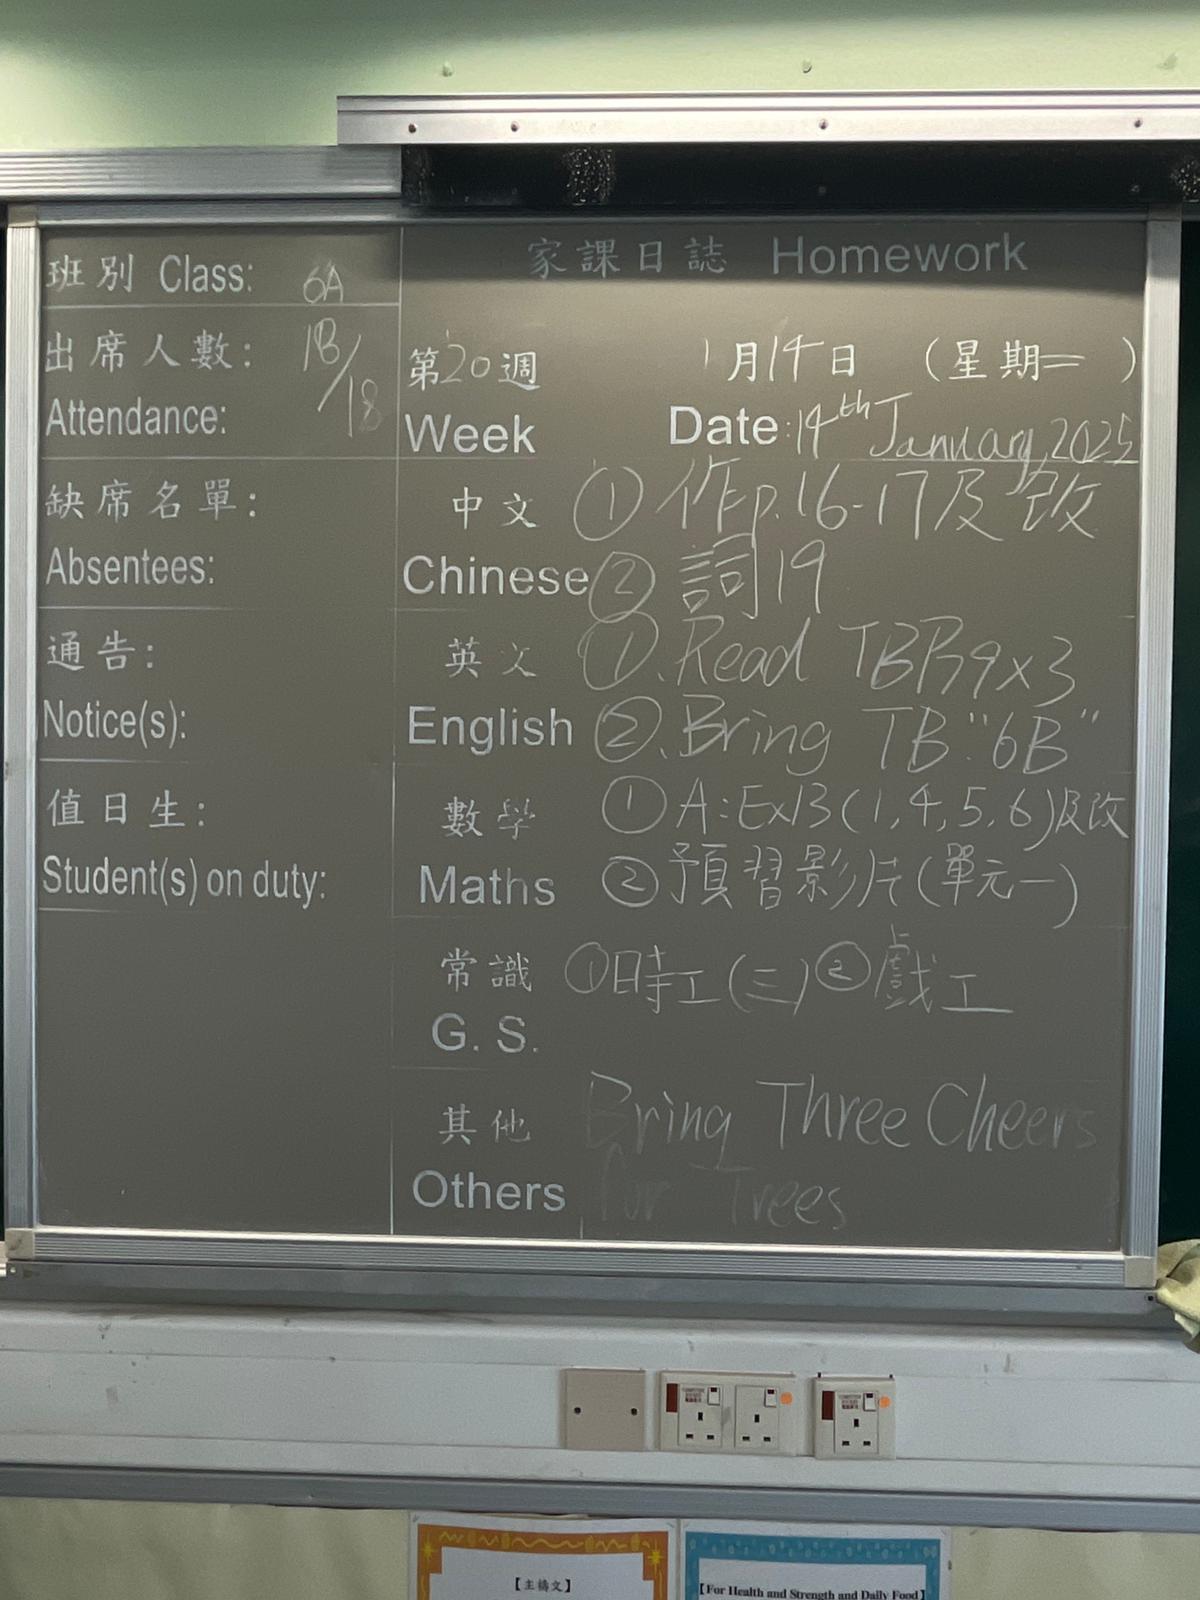 班別 Class: 6A
出席人數: 18/18
Attendance:
缺席名單:
Absentees:
通告:
Notice(s):
值日生:
Student(s) on duty:
家課日誌 Homework
第20週 1月14日 (星期二)
Week Date: 14th January, 2025
中文 ① 作p.16-17及改
Chinese ② 詞19
英文 ①. Read TBP.79x3
English ②. Bring TB "6B"
數學 ① A:Ex13(1,4,5,6)及改
Maths ② 預習影片(單元一)
常識 ①時工(三) ②戲工
G. S.
其他 Bring Three Cheers
Others for Trees
【主禱文】
【For Health and Strength and Daily Food】